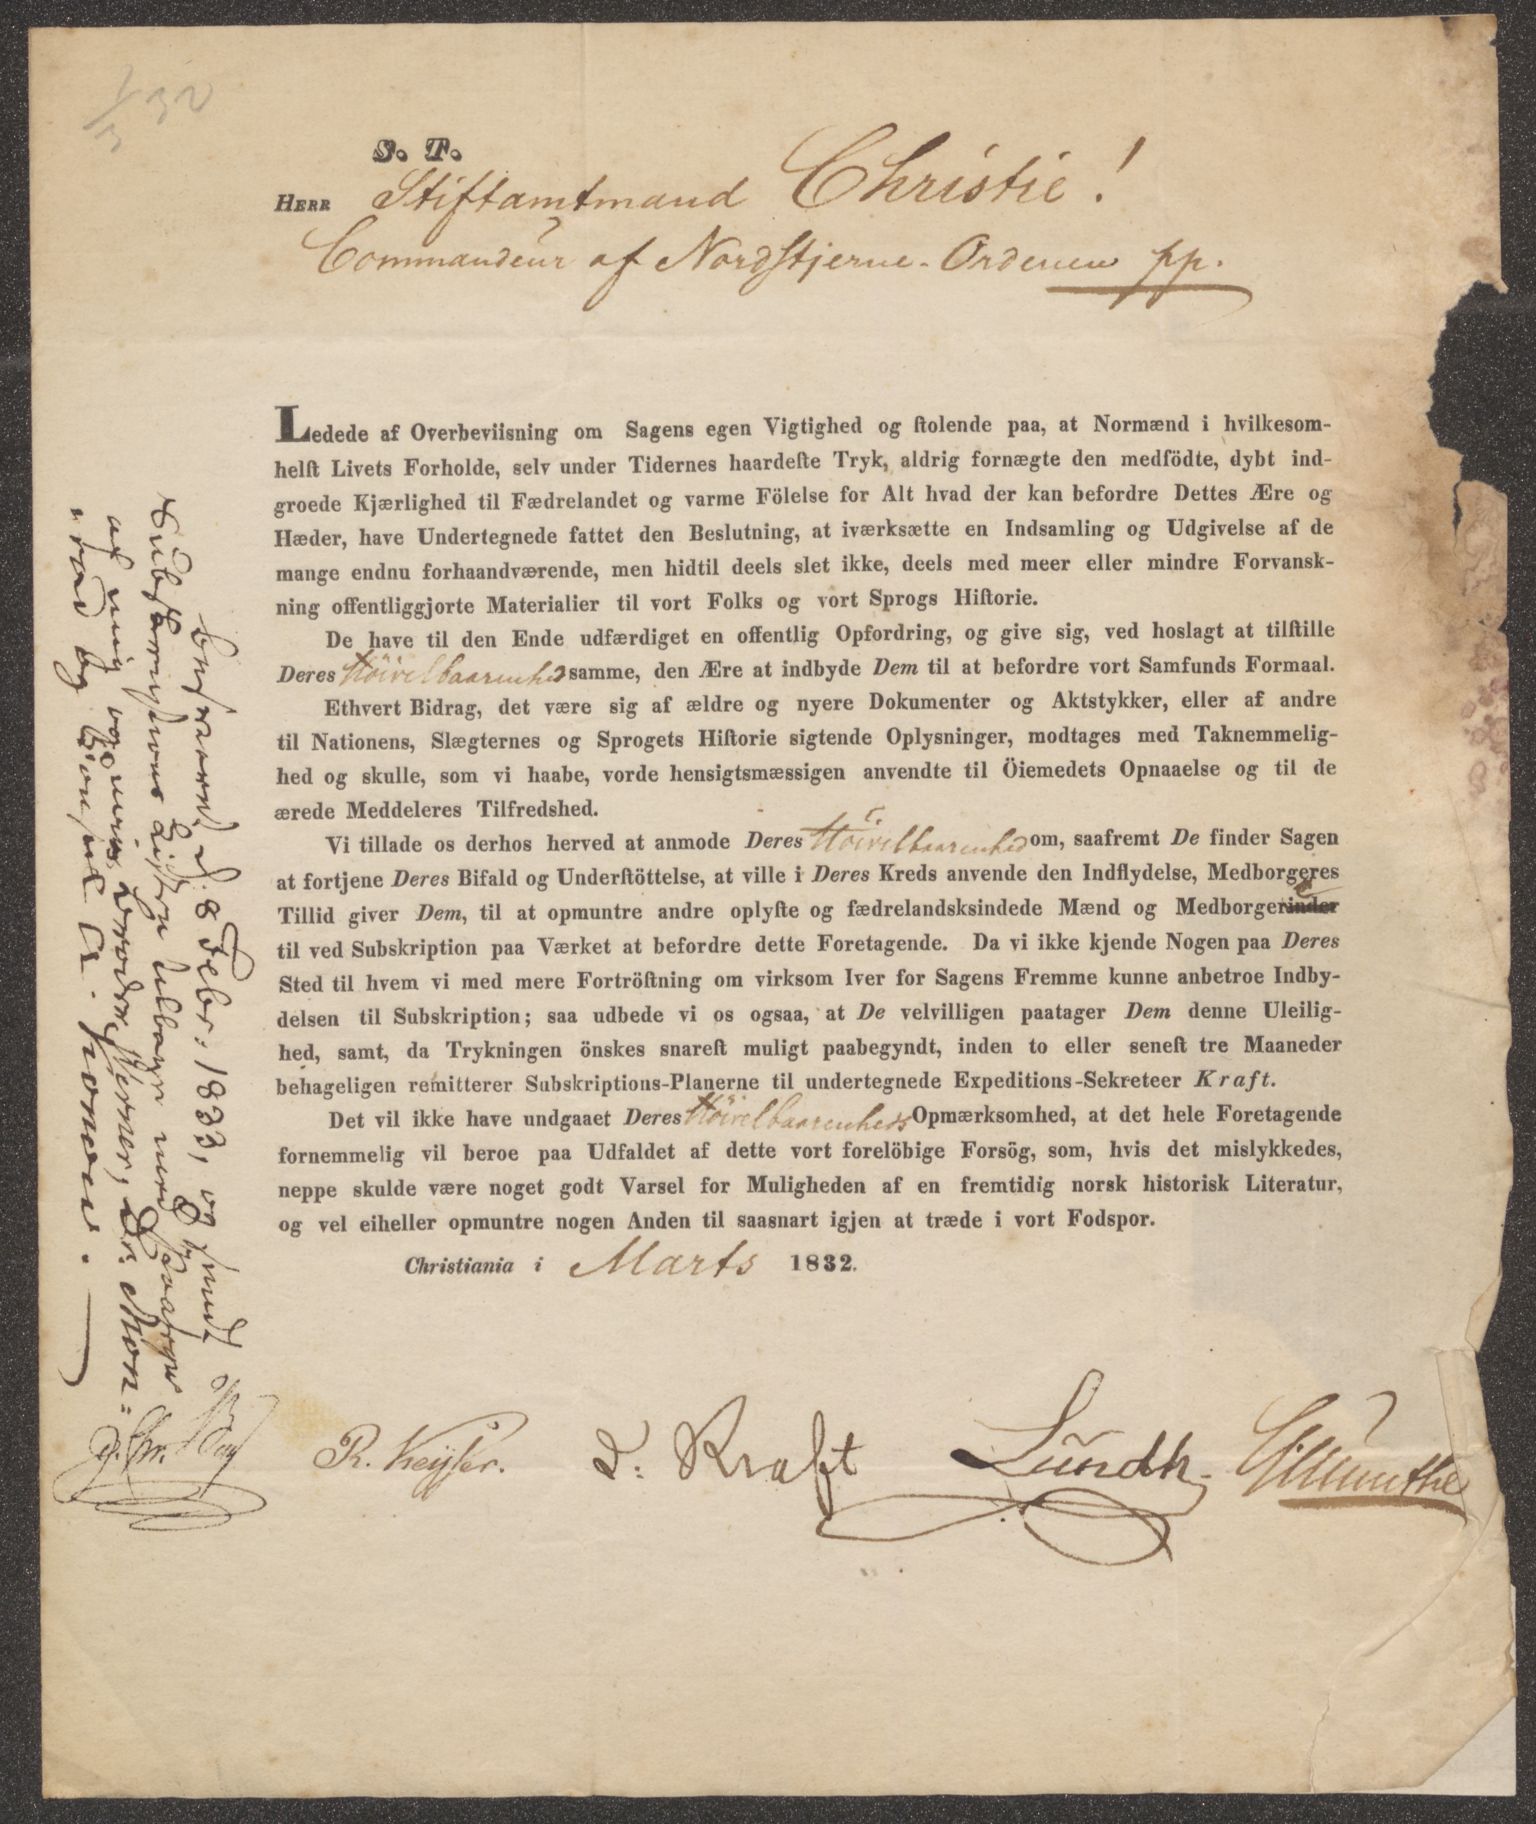 1/3 32
S. T.
HERR Stiftamtmand Christie!
Commandeur af Nordstjerne-Ordenen pp.
Ledede af Overbeviisning om Sagens egen Vigtighed og ſtolende paa, at Normænd i hvilkesom-
helſt Livets Forholde, selv under Tidernes haardeſte Tryk, aldrig fornægte den medfödte, dybt ind-
groede Kjærlighed til Fædrelandet og varme Fölelse for Alt hvad der kan befordre Dettes Ære og
Hæder, have Undertegnede fattet den Beslutning, at iværksætte en Indsamling og Udgivelse af de
mange endnu forhaandværende, men hidtil deels slet ikke, deels med meer eller mindre Forvansk-
ning offentliggjorte Materialier til vort Folks og vort Sprogs Hiſtorie.
De have til den Ende udfærdiget en offentlig Opfordring, og give sig, ved hoslagt at tilſtille
Deres Höivelbaarenhed samme, den Ære at indbyde Dem til at befordre vort Samfunds Formaal.
Ethvert Bidrag, det være sig af ældre og nyere Dokumenter og Aktstykker, eller af andre
til Nationens, Slægternes og Sprogets Hiſtorie sigtende Oplysninger, modtages med Taknemmelig-
hed og skulle, som vi haabe, vorde hensigtsmæssigen anvendte til Öiemedets Opnaaelse og til de
ærede Meddeleres Tilfredshed.
Vi tillade os derhos herved at anmode Deres Höivelbaarenhed om, saafremt De finder Sagen
at fortjene Deres Bifald og Underſtöttelse, at ville i Deres Kreds anvende den Indflydelse, Medborgeres
Tillid giver Dem, til at opmuntre andre oplyſte og fædrelandsksindede Mænd og Medborgerinder
til ved Subskription paa Værket at befordre dette Foretagende. Da vi ikke kjende Nogen paa Deres
Sted til hvem vi med mere Fortröſtning om virksom Iver for Sagens Fremme kunne anbetroe Indby-
delsen til Subskription; saa udbede vi os ogsaa, at De velvilligen paatager Dem denne Uleilig-
hed, samt, da Trykningen önskes snareſt muligt paabegyndt, inden to eller seneſt tre Maaneder
behageligen remitterer Subskriptions-Planerne til undertegnede Expeditions-Sekreteer Kraft.
Det vil ikke have undgaaet Deres Höivelbaarenheds Opmærksomhed, at det hele Foretagende
fornemmelig vil beroe paa Udfaldet af dette vort forelöbige Forsög, som, hvis det mislykkedes,
neppe skulde være noget godt Varsel for Muligheden af en fremtidig norsk historisk Literatur,
og vel eiheller opmuntre nogen Anden til saasnart igjen at træde i vort Fodspor.
Christiania i Marts 1832.
R. Keyser. J: Kraft Lundh. G Munthe
Besvaret d. 8 Febr: 1833, og sendt
Subscriptions Listen tilbage med
af mig og mine Brødre Werner, Dr. Mon-
rad og Consul